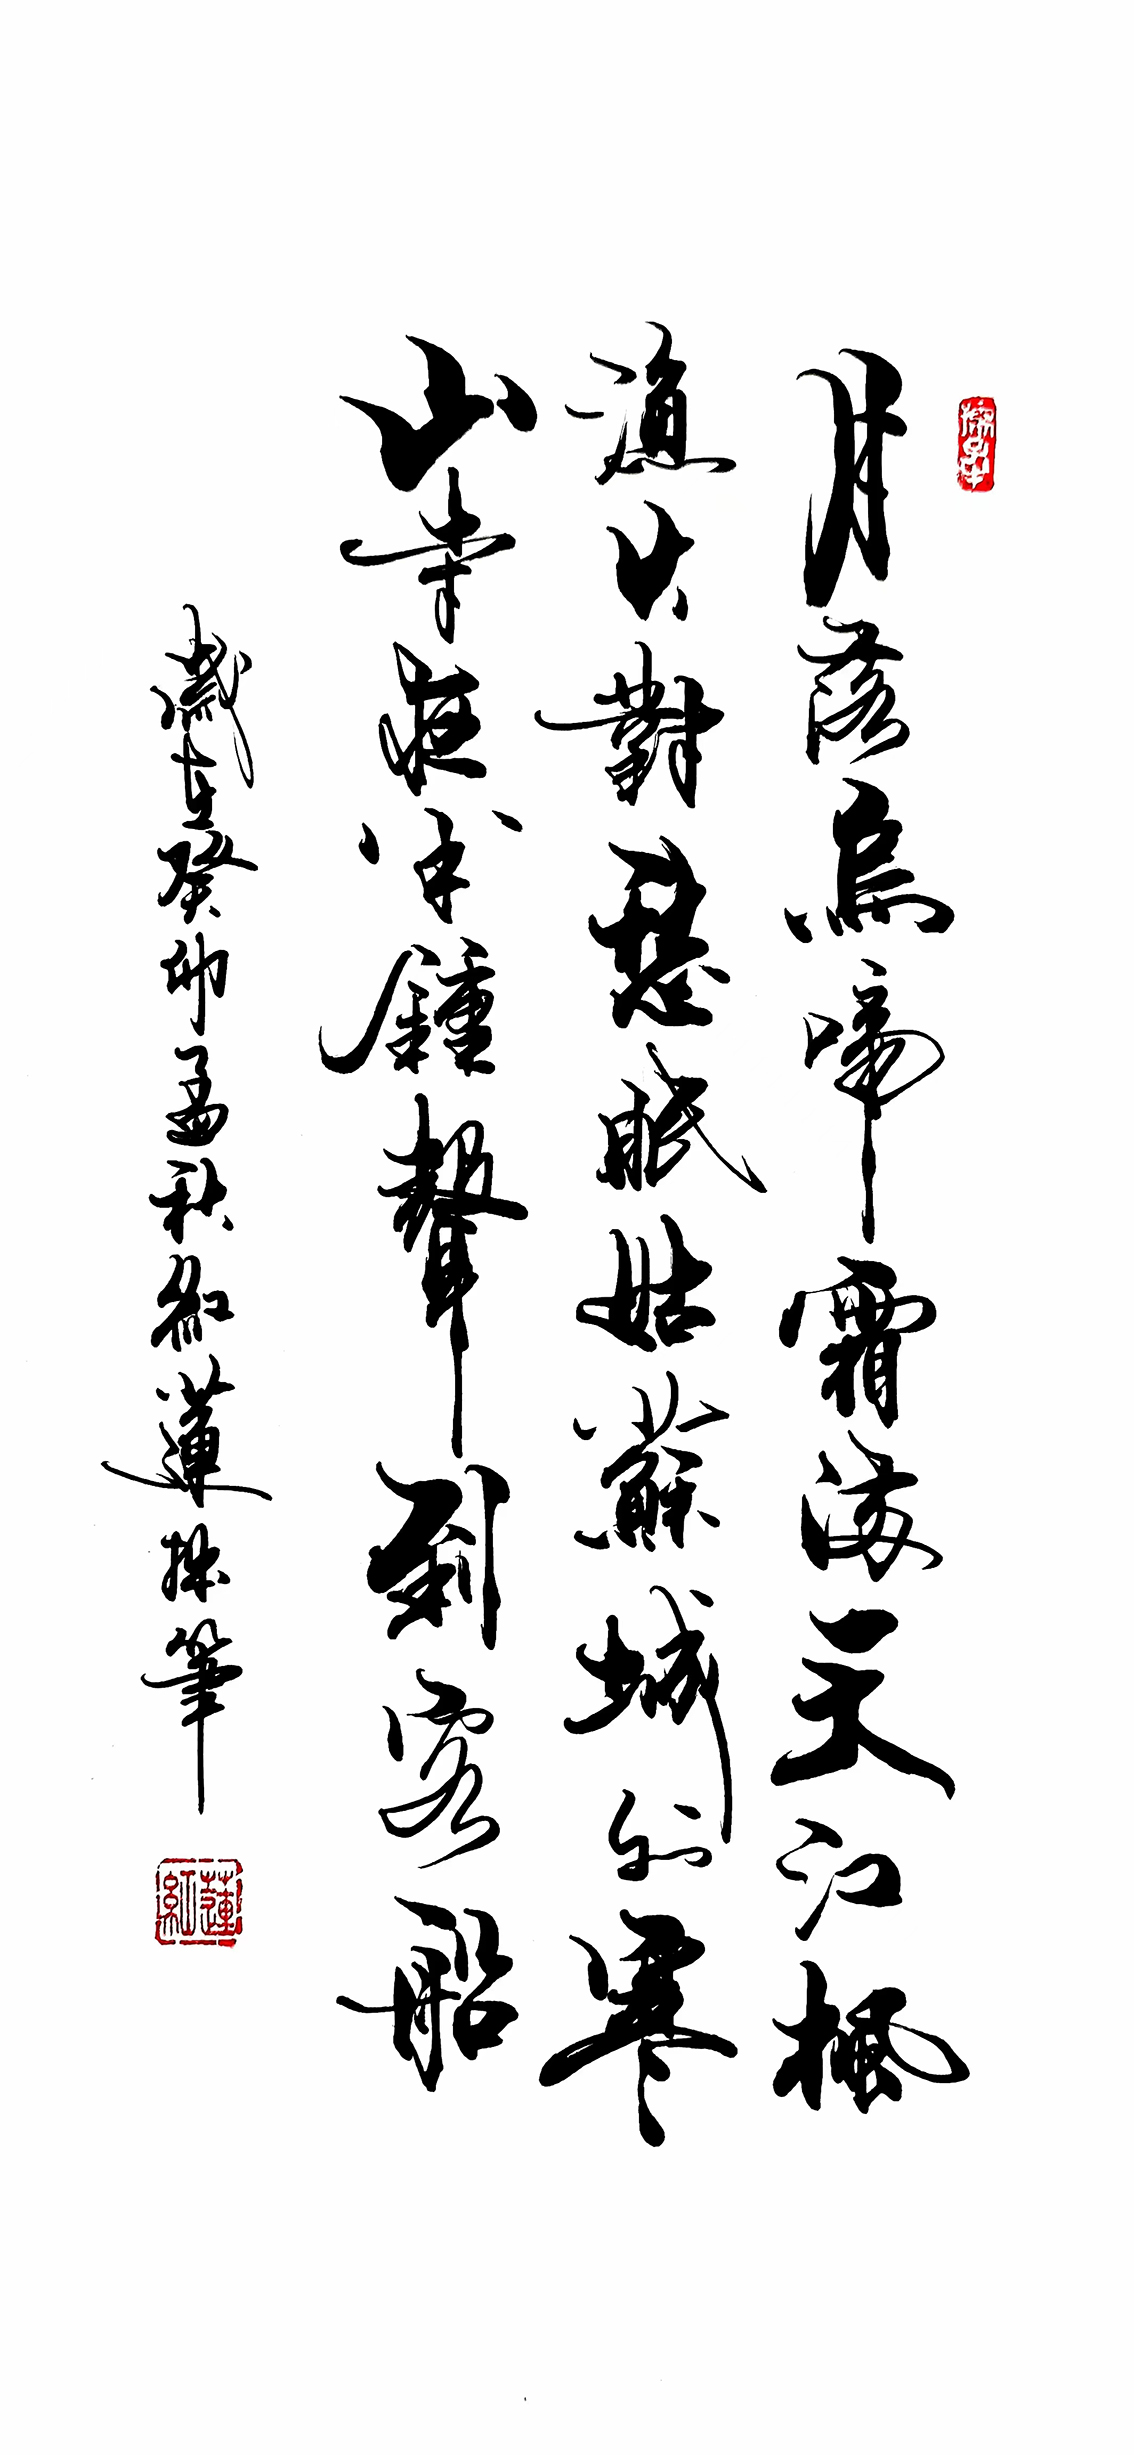 月落烏啼霜滿天江楓
漁火對愁眠姑蘇城外寒
山寺夜半鍾聲到客船
歲在癸卯孟秋紅蓮操筆
紅蓮